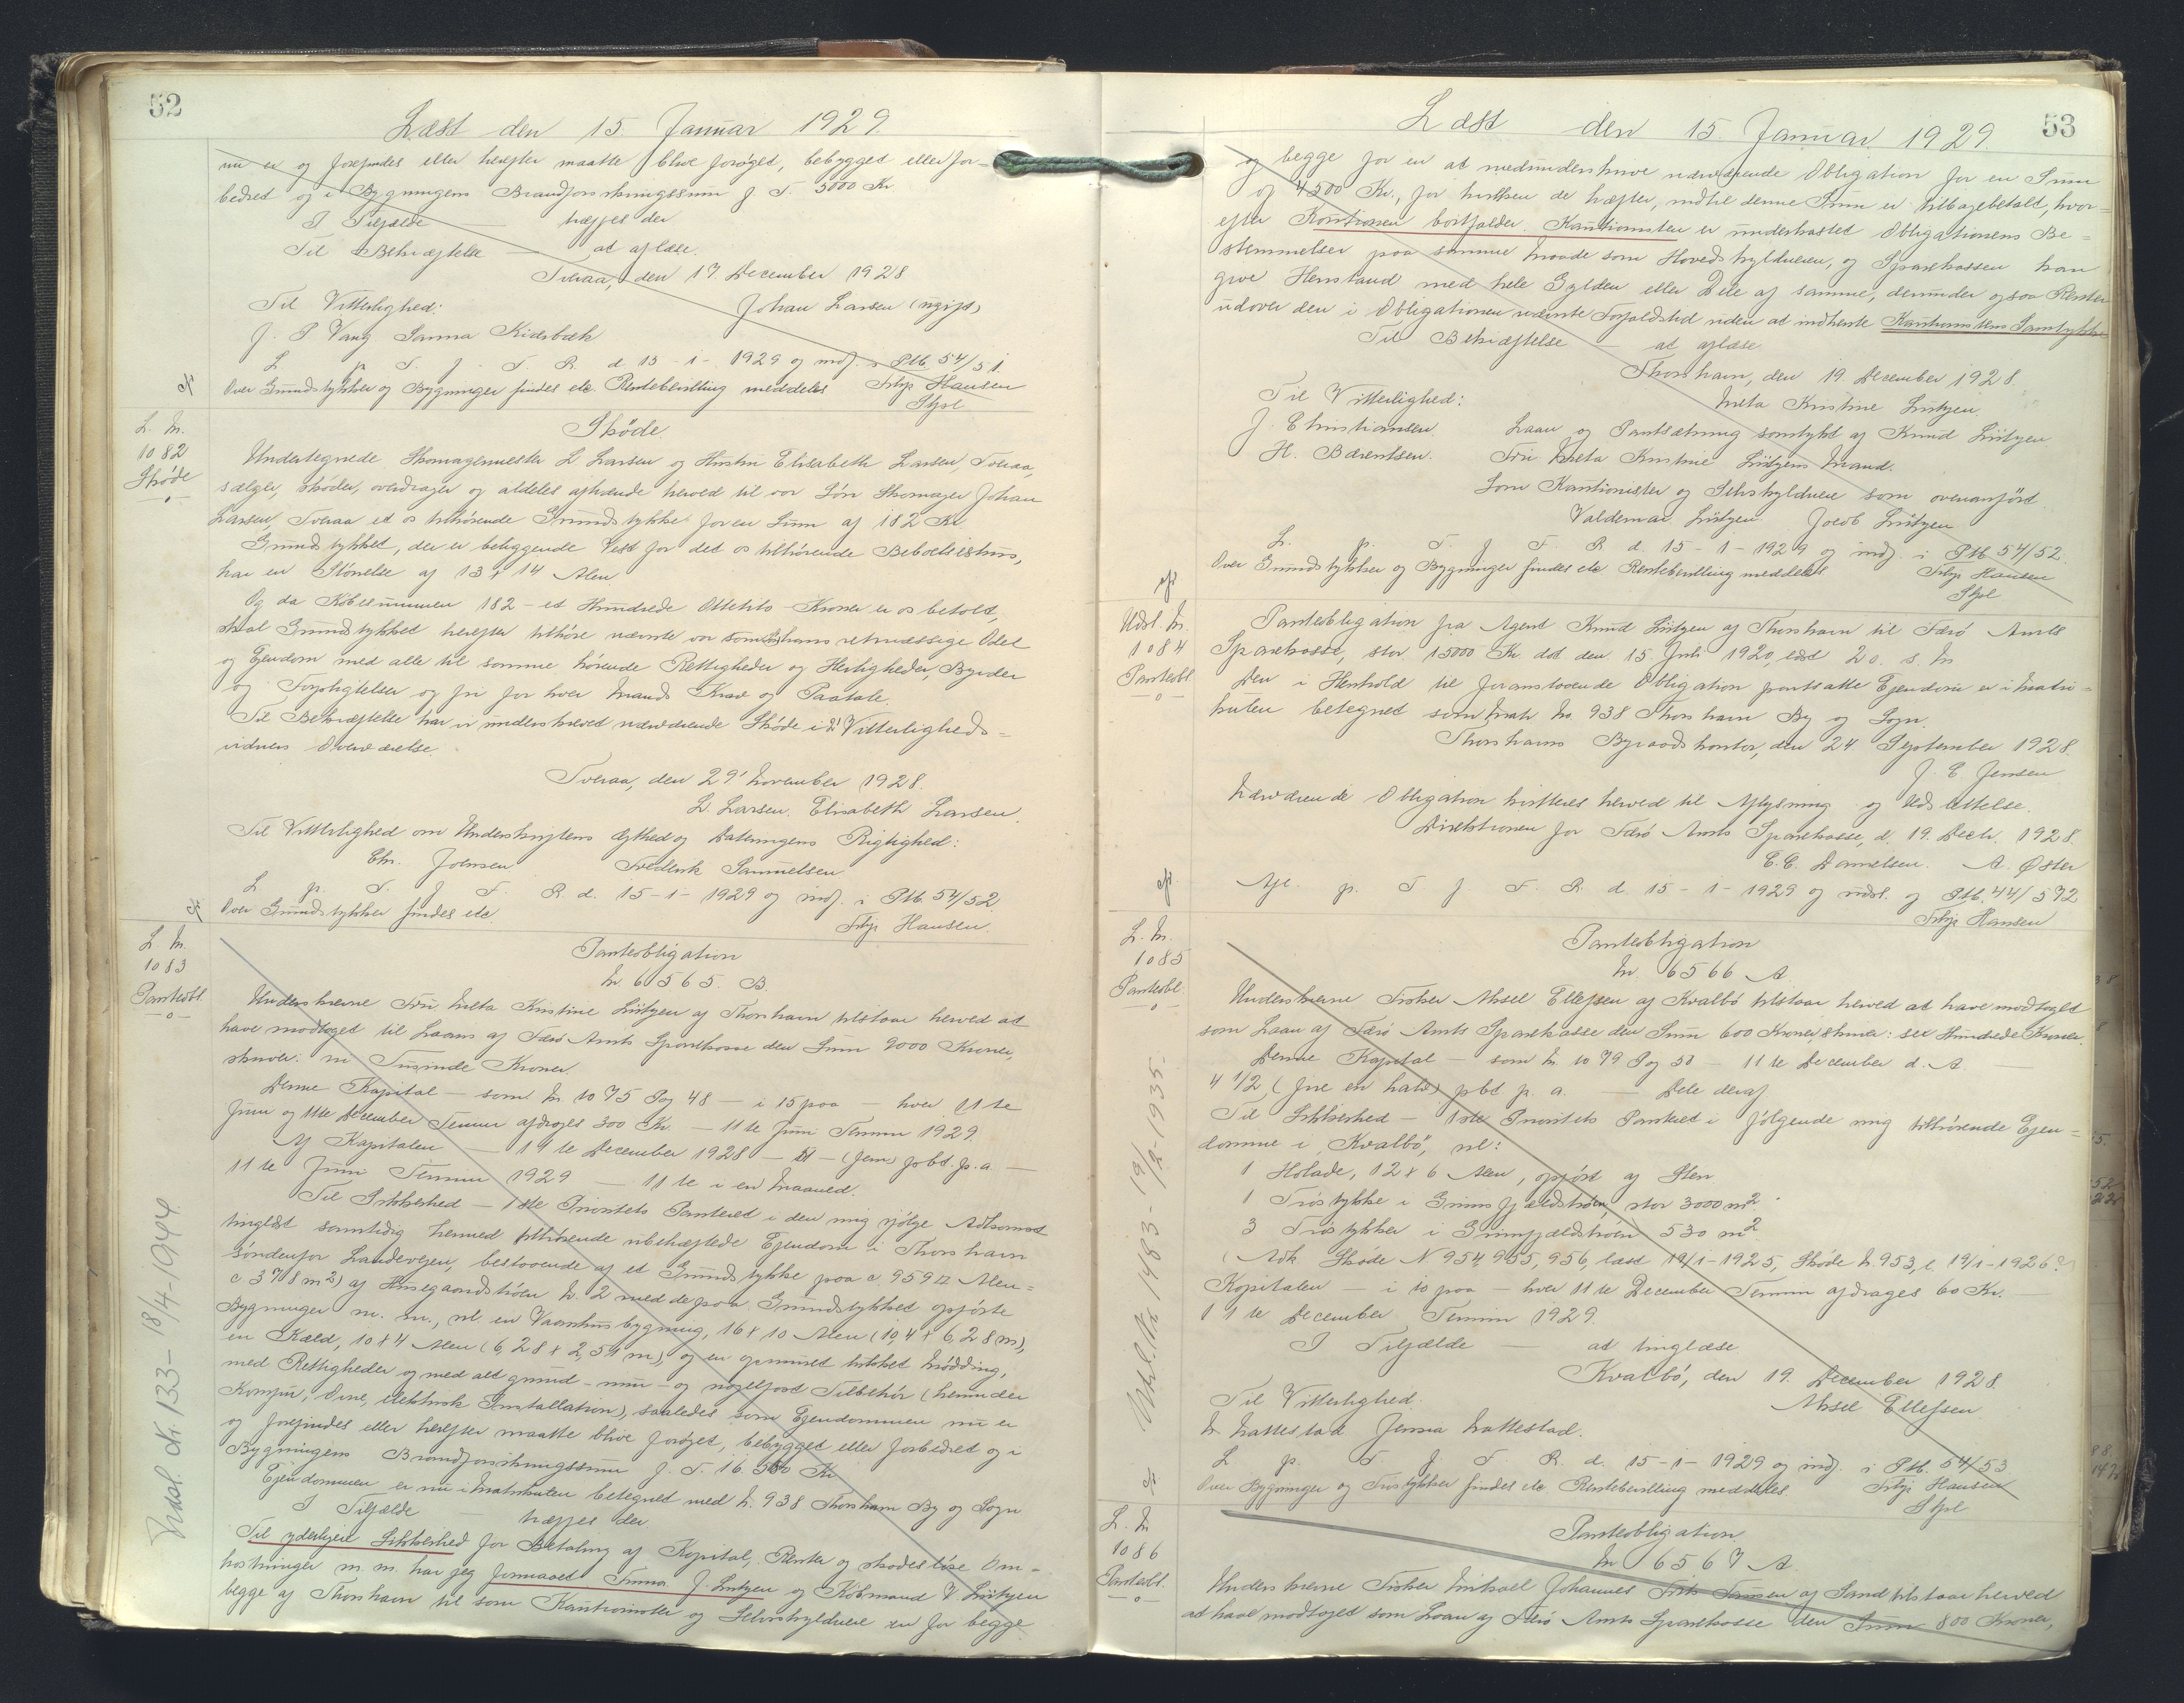 52
Læst den 15. Januar 1929.
nu er og forefindes eller herefter maatte blive forøget, bebygget eller for-
bedret og i Bygningens Brandforsikringssum p T. 5000 Kr
I Tilfælde — træffes der
Til Bekræftelse — at aflæse.
Tveraa, den 17. December 1928
Til Vitterlighed: Johan Larsen (ugift)
J. P. Vang Sanna Kidsbæk
L p T. J. F. R. d 15-1-1929 og indf. i Ptb. 54/51.
Over Grundstykker og Bygninger findes etc Rentebevilling meddeles Filip Hansen
Stpl
L. N.
1082
Skøde
Skøde
Undertegnede Skomagermester L Larsen og Hustru Elisabeth Larsen, Tveraa,
sælger, skøder, overdrager og aldeles afhænde herved til vor Søn Skomager Johan
Larsen, Tveraa et os tilhørende Grundstykke for en Sum af 182 Kr
Grundstykket, der er beliggende Vest for det os tilhørende Beboelseshus,
har en Størrelse af 13 x 14 Alen
Og da Købesummen 182 - et Hundrede Ottetito - Kroner er os betalt,
skal Grundstykket herefter tilhøre nævnte vor Søn som hans retmæssige Odel
og Ejendom med alle til samme hørende Rettigheder og Herligheder, Byrder
og Forpligtelser og fri for hver Mands Krav og Paatale.
Til Bekræftelse har vi underskrevet nærværende Skøde i 2 Vitterligheds-
vidners Overværelse.
Tveraa, den 29' November 1928.
L. Larsen. Elisabeth Larsen.
Til Vitterlighed om Underskriftens Ægthed og Dateringens Rigtighed:
Chr. Joensen Frederik Samuelsen
L p. T. J F. R. d. 15-1-1929 og indf. i Ptb. 54/52.
Over Grundstykker findes etc. Filip Hansen.
L. N.
1083
Panteobl.
Panteobligation
Nr. 6565. B.
Underskrevne Fru Meta Kristine Lützen af Thorshavn tilstaar herved at
have modtaget til Laans af Færø Amts Sparekasse den Sum 9000 Kroner,
skriver: ni Tusinde Kroner.
Denne Kapital - som Nr 1075 Pag 48 - i 15 paa - hver 11te
Juni og 11te December Termin afdrages 300 Kr. - 11te Juni Termin 1929
Af Kapitalen - 11te December 1928 - 5 - (fem) pbt. p. a. -
11te Juni Termin 1929 - 11te i en Maaned.
Til Sikkerhed - 1ste Prioritets Panteret i den mig ifølge Adkomst
tinglæst samtidig hermed tilhørende ubehæftede Ejendom i Thorshavn
Søndenfor Landevejen, bestaaende af et Grundstykke paa c. 959 □ Alen =
c 378 m2) af Husegaardstrøen Nr. 2 med de paa Grundstykket opførte
Bygninger m. m., nl en Vaanhusbygning, 16 x 10 Alen (10,4 x 6,28 m),
en Kæld, 10 x 4 Alen (6,28 x 2,51 m), og en gemuret lukket Mødding,
med Rettigheder og med alt grund- mur- og nagelfast Tilbehør (herunder
Komfur, Ovne, elektrisk Installation), saaledes som Ejendommen nu er
og forefindes eller herefter maatte blive forøget, bebygget eller forbedret og i
Bygningens Brandforsikringssum p. T. 16.500 Kr
Ejendommen er nu i Matrikulen betegnet med Nr. 938 Thorshavn By og Sogn
I Tilfælde — træffes der
Til yderligere Sikkerhed for Betaling af Kapital, Renter og skadesløse Om-
kostninger m. m. har jeg formaaet J. Lützen og Købmand V. Lützen
begge af Thorshavn til som Kautionister og Selvskyldnere en for begge
Udsl. Nr. 133 - 18/4-1944
53
Læst den 15. Januar 1929
og begge for en at medunderskrive nærværende Obligation for en Sum
og 4500 Kr., for hvilken de hæfter, indtil denne Sum er tilbagebetalt, hvor-
efter Kautionen bortfalder. Kautionisten er underkastet Obligationens Be-
stemmelser paa samme Maade som Hovedskyldneren, og Sparekassen kan
give Henstand med hele Gælden eller Dele af samme, derunder ogsaa Renter
udover den i Obligationen nævnte Forfaldstid uden at indhente Kautionistens Samtykke
Til Bekræftelse — at aflæse
Thorshavn, den 19. December 1928.
Til Vitterlighed: Meta Kristine Lützen.
J. Christiansen. Laan og Pantsætning samtykt af Knud Lützen
H. Bærentsen. Fru Meta Kristine Lützens Mand.
Som Kautionister og Selvskyldnere som ovenanført
Valdemar Lützen Jacob Lützen
L. p. T. J F. R. d. 15-1-1929 og indf. i Ptb 54/52.
Over Grundstykker og Bygninger findes etc Rentebevilling meddeles Filip Hansen
Stpl
Udsl. N.
1084
Panteobl
Panteobligation fra Agent Knud Lützen af Thorshavn til Færø Amts
Sparekasse, stor 15000 Kr dat den 15 Juli 1920, læst 20. s. M
Den i Henhold til foranstaaende Obligation pantsatte Ejendom er i Matri-
kulen betegnet som Matr Nr. 938 Thorshavn By og Sogn.
Thorshavns Byraadskontor, den 24 September 1928.
J. C. Jensen
Nærværende Obligation kvitteres herved til Aflysning og Udslettelse.
Direktionen for Færø Amts Sparekasse, d. 19. Decbr. 1928.
C. C. Danielsen. A. Øster
Afl. p. T J F. R. d. 15-1-1929 og udsl. og Ptb. 44/572
Filip Hansen
L. N.
1085
Panteobl
Panteobligation
Nr 6566 A
Underskrevne Fisker Aksel Ellefsen af Kvalbø tilstaar herved at have modtaget
som Laan af Færø Amts Sparekasse den Sum 600 Kroner, skriver: sex Hundrede Kroner.
Denne Kapital - som Nr 1079 Pag 50 - 11te December d. A. -
4 1/2 (fire en halv) pbt p. a. - Dele deraf
Til Sikkerhed - 1ste Prioritets Panteret i følgende mig tilhørende Ejen-
domme i Kvalbø, nl:
1 Hølade, 12 x 6 Alen, opført af Sten
1 Trøstykke i Grimsfjældstrøen, stor 3000 m2.
3 Trøstykker i Grimsfjældstrøen 530 m2
(Adk Skøde N 954, 955, 956, læst 19/1-1925, Skøde Nr. 953, l. 19/1-1926)
Kapitalen - i 10 paa - hver 11te December Termin afdrages 60 Kr. -
11te December Termin 1929.
I Tilfælde — at tinglæse
Kvalbø, den 19. December 1928.
Til Vitterlighed. Aksel Ellefsen
N Nattestad Jensia Nattestad.
L p. T J F R. d. 15-1-1929 og indf. i Ptb. 54/53
Over Bygninger og Trøstykker findes etc. Rentebevilling meddeles Filip Hansen
Stpl
Udsl. Nr. 1483 - 19/2-1935.
L. N
1086
Panteobl.
Panteobligation
Nr 6567 A.
Underskrevne Fisker Mikael Johannes af Sand tilstaar herved
at have modtaget som Laan af Færø Amts Sparekasse den Sum 800 Kroner,